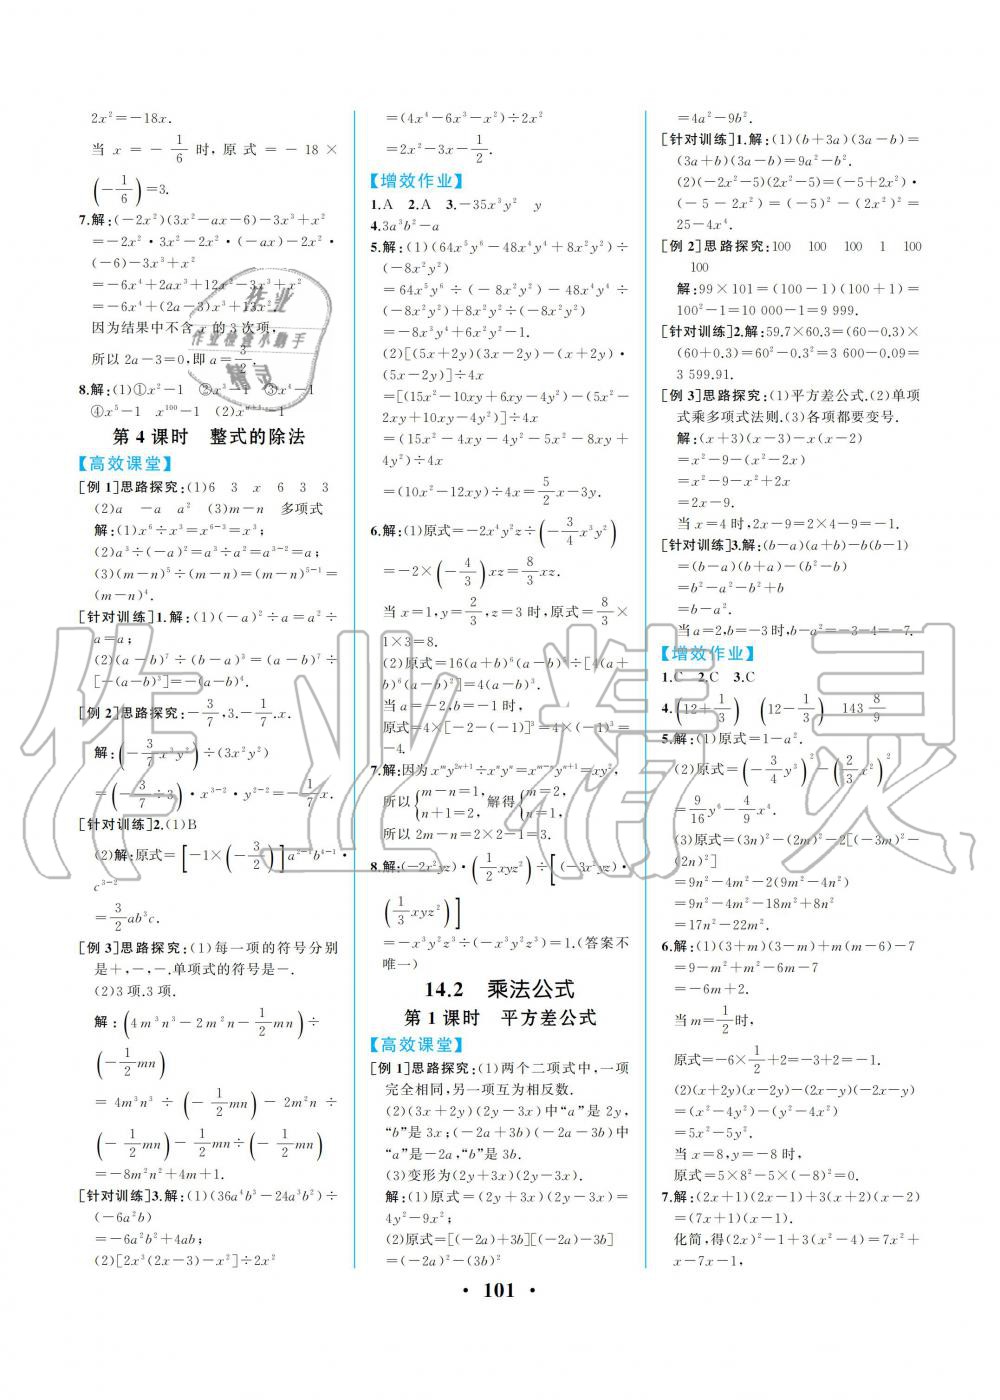 2x²=-18x.
当 x = - 1/6 时, 原 式 = - 18 ×
(-1/6)=3.
7.解:(-2x²)(3x²-ax-6)-3x³+x²
=-2x²·3x²-2x²·(-ax)-2x²·
(-6)-3x³+x²
=-6x⁴+2ax³+12x²-3x³+x²
=-6x⁴+(2a-3)x³+13x².
因为结果中不含 x 的 3 次项,
所以 2a-3=0,即 a=3/2.
8.解:(1)①x²-1 ②x³-1 ③x⁴-1
④x⁵-1 x¹⁰⁰-1 (2)xⁿ⁺¹-1
第 4 课时 整式的除法
【高效课堂】
[例 1]思路探究:(1)6 3 x 6 3 3
(2)a -a a² (3)m-n 多项式
解:(1)x⁶÷x³=x⁶⁻³=x³;
(2)a³÷(-a)²=a³÷a²=a³⁻²=a;
(3)(m-n)⁵÷(m-n)=(m-n)⁵⁻¹=
(m-n)⁴.
[针对训练]1.解:(1)(-a)²÷a=a²÷
a=a;
(2)(a-b)⁷÷(b-a)³=(a-b)⁷÷
[-(a-b)³]=-(a-b)⁴.
[例 2]思路探究:-3/7,3,-1/7,x.
解:(-3/7x³y²)÷(3x²y²)
=(-3/7÷3)·x³⁻²·y²⁻²=-1/7x.
[针对训练]2.(1)B
(2)解:原式=[-1×(-3/2)]a²⁻¹b⁴⁻¹·
c³⁻²
=3/2ab³c.
[例 3]思路探究:(1)每一项的符号分别
是+,-,-.单项式的符号是-.
(2)3 项.3 项.
解:(4m³n³-2m²n-1/2mn)÷
(-1/2mn)
= 4m³n³ ÷ (-1/2mn) - 2m²n ÷
(-1/2mn)-1/2mn÷(-1/2mn)
=-8m²n²+4m+1.
[针对训练]3.解:(1)(36a⁴b³-24a³b²)÷
(-6a²b)
=-6a²b²+4ab;
(2)[2x³(2x-3)-x²]÷2x²
=(4x⁴-6x³-x²)÷2x²
=2x²-3x-1/2.
【增效作业】
1.A 2.A 3.-35x³y² y
4.3a³b²-a
5.解:(1)(64x⁵y⁶-48x⁴y⁴+8x²y²)÷
(-8x²y²)
=64x⁵y⁶÷(-8x²y²)-48x⁴y⁴÷
(-8x²y²)+8x²y²÷(-8x²y²)
=-8x³y⁴+6x²y²-1.
(2)[(5x+2y)(3x-2y)-(x+2y)·
(5x-2y)]÷4x
=[(15x²-10xy+6xy-4y²)-(5x²-
2xy+10xy-4y²)]÷4x
=(15x²-4xy-4y²-5x²-8xy+
4y²)÷4x
=(10x²-12xy)÷4x=5/2x-3y.
6.解:(1)原式=-2x⁴y²z÷(-3/4x³y²)
=-2×(-4/3)xz=8/3xz.
当 x=1,y=2/3,z=3 时,原式=8/3×
1×3=8.
(2)原式=16(a+b)⁶(a-b)⁵÷[4(a+
b)⁶(a-b)²]=4(a-b)³.
当 a=-2,b=-1 时,
原式=4×[-2-(-1)]³=4×(-1)³=
-4.
7.解:因为 xᵐy²ⁿ⁺¹÷xⁿyⁿ=xᵐ⁻ⁿyⁿ⁺¹=xy²,
所以{m-n=1, n+1=2, 解得{m=2, n=1,
所以 2m-n=2×2-1=3.
8.解:(-2x²yz)·(1/2xyz²)÷[(-3x²yz)·
(1/3xyz²)]
=-x³y²z³÷(-x³y²z³)=1.(答案不
唯一)
14.2 乘法公式
第 1 课时 平方差公式
【高效课堂】
[例 1]思路探究:(1)两个二项式中,一项
完全相同,另一项互为相反数.
(2)(3x+2y)(2y-3x)中“a”是 2y,
“b”是 3x;(-2a+3b)(-2a-3b)中
“a”是-2a,“b”是 3b.
(3)变形为(2y+3x)(2y-3x).
解:(1)原式=(2y+3x)(2y-3x)=
4y²-9x²;
(2)原式=[(-2a)+3b][(-2a)-3b]
=(-2a)²-(3b)²
=4a²-9b².
[针对训练]1.解:(1)(b+3a)(3a-b)=
(3a+b)(3a-b)=9a²-b².
(2)(-2x²-5)(2x²-5)=(-5+2x²)·
(-5-2x²)=(-5)²-(2x²)²=
25-4x⁴.
[例 2]思路探究:100 100 100 1 100
100
解:99×101=(100-1)(100+1)=
100²-1=10 000-1=9 999.
[针对训练]2.解:59.7×60.3=(60-0.3)×
(60+0.3)=60²-0.3²=3 600-0.09=
3 599.91.
[例 3]思路探究:(1)平方差公式.(2)单项
式乘多项式法则.(3)各项都要变号.
解:(x+3)(x-3)-x(x-2)
=x²-9-(x²-2x)
=x²-9-x²+2x
=2x-9.
当 x=4 时,2x-9=2×4-9=-1.
[针对训练]3.解:(b-a)(a+b)-b(b-1)
=(b-a)(b+a)-(b²-b)
=b²-a²-b²+b
=b-a².
当 a=2,b=-3 时,b-a²=-3-4=-7.
【增效作业】
1.C 2.C 3.C
4.(12+1/3) (12-1/3) 143 8/9
5.解:(1)原式=1-a².
(2)原式=(-3/4y³)²-(2/3x²)²
=9/16y⁶-4/9x⁴.
(3)原式=(3n)²-(2m)²-2[(-3m)²-
(2n)²]
=9n²-4m²-2(9m²-4n²)
=9n²-4m²-18m²+8n²
=17n²-22m².
6.解:(1)(3+m)(3-m)+m(m-6)-7
=9-m²+m²-6m-7
=-6m+2.
当 m=1/2时,
原式=-6×1/2+2=-3+2=-1.
(2)(x+2y)(x-2y)-(2x-y)(-2x-y)
=(x²-4y²)-(y²-4x²)
=5x²-5y².
当 x=8,y=-8 时,
原式=5×8²-5×(-8)²=0.
7.解:(2x+1)(2x-1)+3(x+2)(x-2)
=(7x+1)(x-1).
化简,得(2x)²-1+3(x²-4)=7x²+
x-7x-1,
· 101 ·
作业
作业检查小助手
精灵
作业精灵